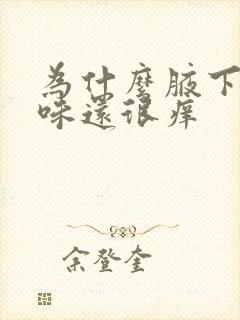 為什麼腋下
味還很癢
余登奎